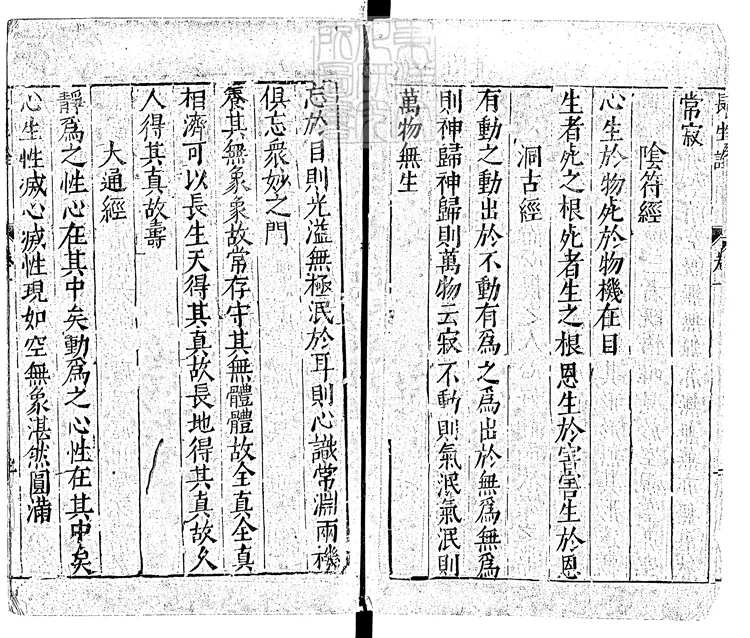 常寂
陰符經
心生於物死於物機在目
生者死之根死者生之根恩生於害害生於恩
洞古經
有動之動出於不動有為之為出於無為無為
則神歸神歸則萬物云寂不動則氣泯氣泯則
萬物無生
忘於目則光溢無極泯於耳則心識常淵兩機
俱忘衆妙之門
養其無象象故常存守其無體體故全真全真
相濟可以長生天得其真故長地得其真故久
人得其真故壽
大通經
靜為之性心在其中矣動為之心性在其中矣
心生性滅心滅性現如空無象湛然圓滿